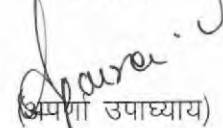 (अपर्णा उपाध्याय)